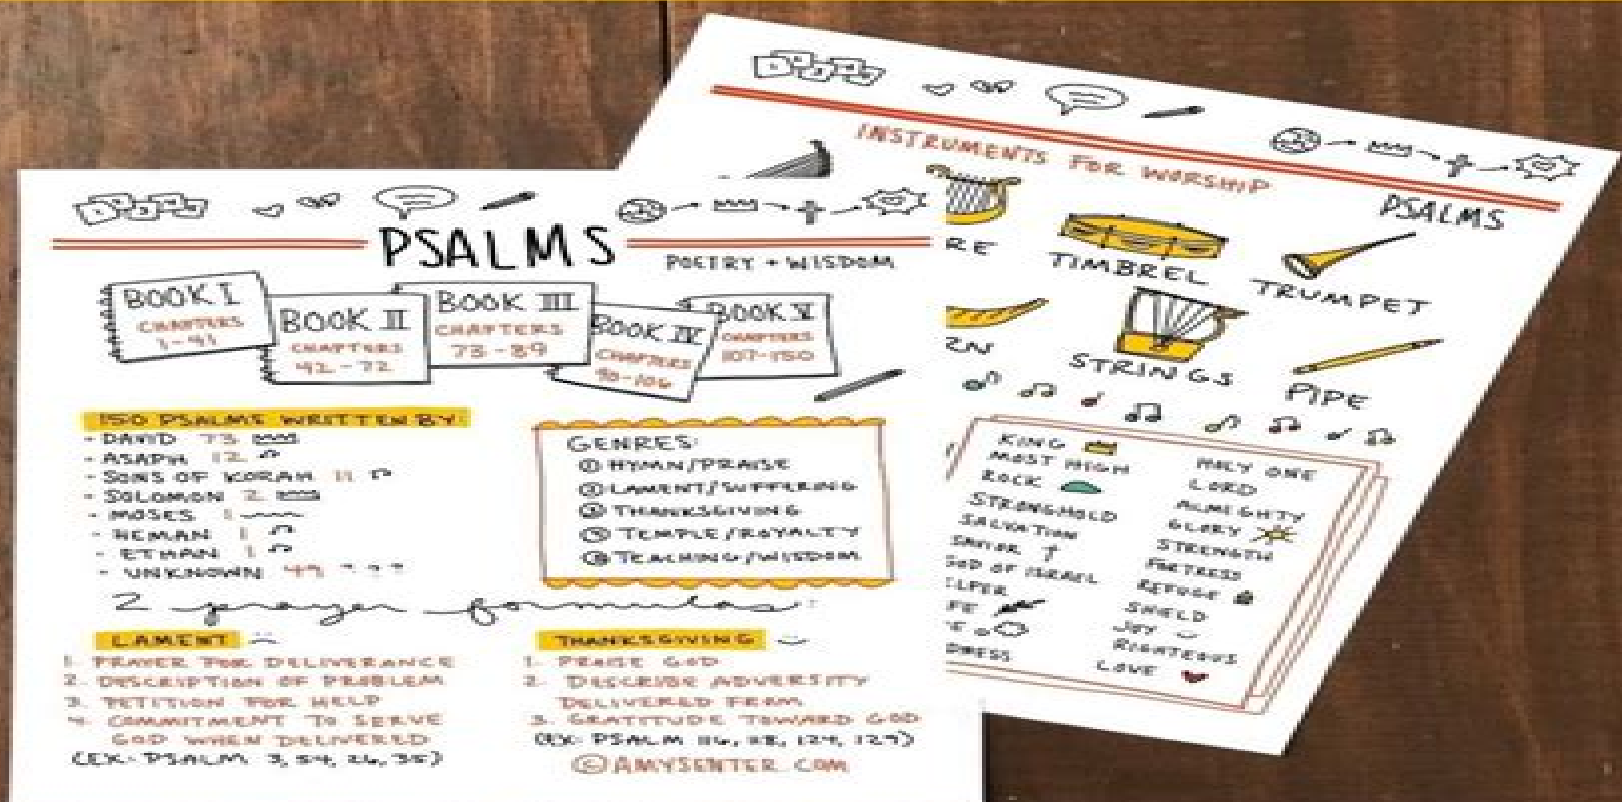 PSALMS
POETRY + WISDOM
BOOK I
CHAPTERS
1-41
BOOK II
CHAPTERS
42-72
BOOK III
CHAPTERS
73-89
BOOK IV
CHAPTERS
90-106
BOOK V
CHAPTERS
107-150
150 PSALMS WRITTEN BY:
- DAVID 73
- ASAPH 12
- SONS OF KORAH 11
- SOLOMON 2
- MOSES 1
- HEMAN 1
- ETHAN 1
- UNKNOWN 49 ???
GENRES:
① HYMN/PRAISE
② LAMENT/SUFFERING
③ THANKSGIVING
④ TEMPLE/ROYALTY
⑤ TEACHING/WISDOM
2 prayer formulas:
LAMENT
1. PRAYER FOR DELIVERANCE
2. DESCRIPTION OF PROBLEM
3. PETITION FOR HELP
4. COMMITMENT TO SERVE
GOD WHEN DELIVERED
(EX: PSALM 3, 54, 26, 35)
THANKSGIVING
1. PRAISE GOD
2. DESCRIBE ADVERSITY
DELIVERED FROM
3. GRATITUDE TOWARD GOD
(EX: PSALM 116, 124, 129)
© AMYSENTER.COM
INSTRUMENTS FOR WORSHIP
PSALMS
RE
TIMBREL
TRUMPET
STRINGS
PIPE
KING
MOST HIGH
ROCK
STRONGHOLD
SALVATION
SAVIOR
GOD OF ISRAEL
ELPER
FE
DNESS
HOLY ONE
LORD
ALMIGHTY
GLORY
STRENGTH
FORTRESS
REFUGE
SHIELD
JOY
RIGHTEOUS
LOVE